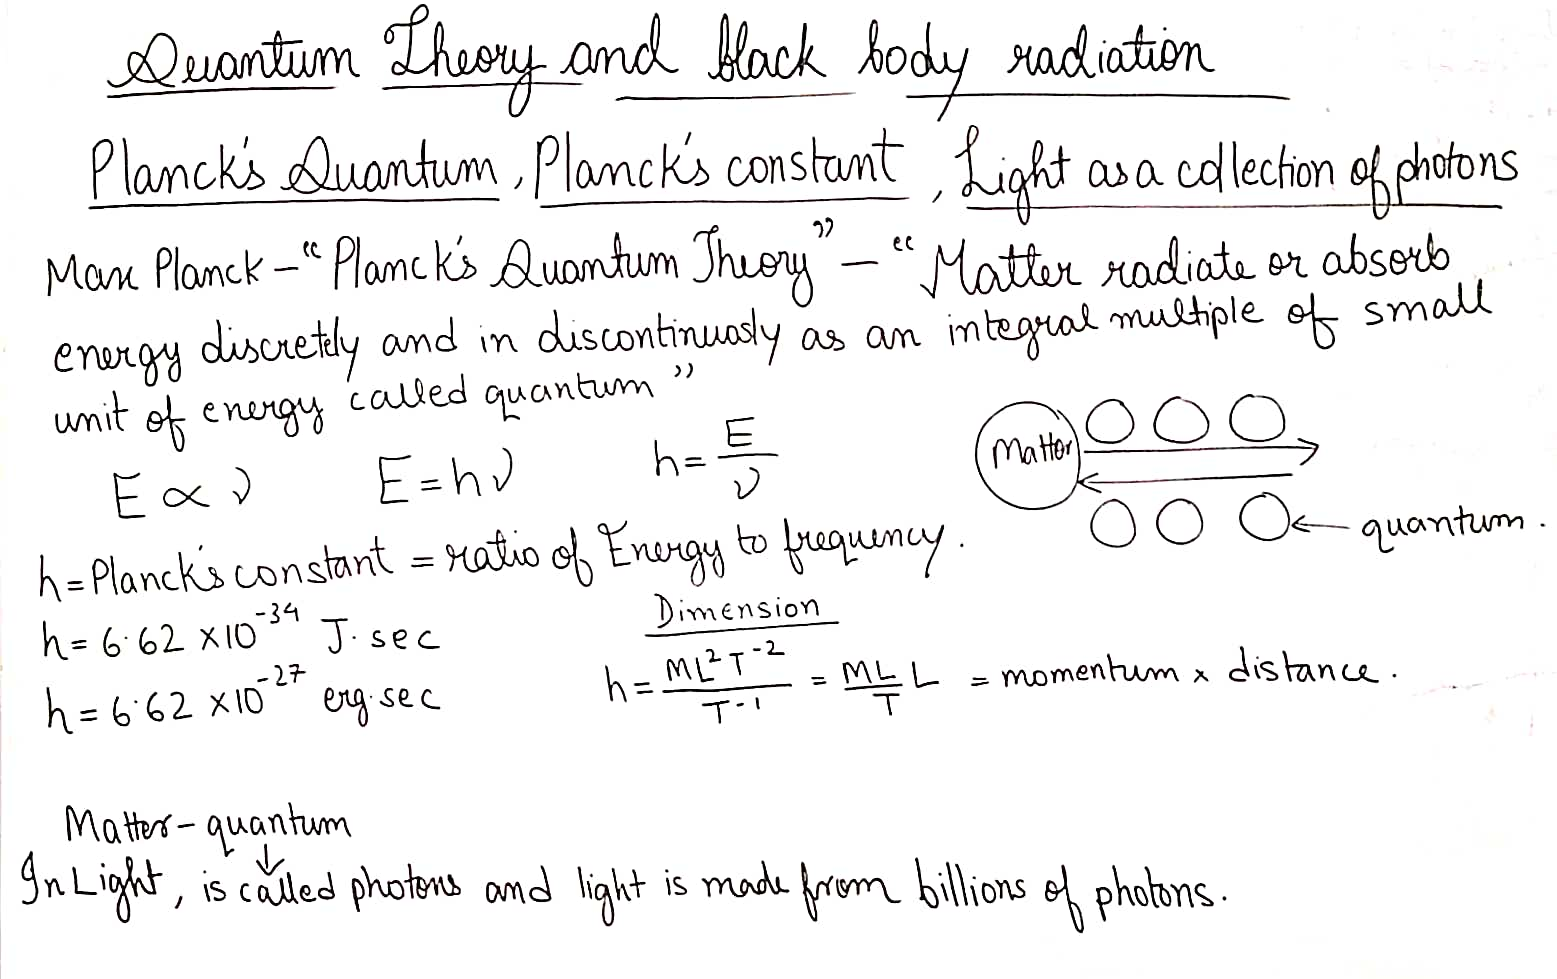 Quantum Theory and black body radiation
Planck's Quantum, Planck's constant, Light as a collection of photons
Max Planck - "Planck's Quantum Theory" - "Matter radiate or absorb
energy discretely and in discontinuosly as an integral multiple of small
unit of energy called quantum"
E ∝ ν E = hν h = E/ν
Matter
quantum.
h = Planck's constant = ratio of Energy to frequency.
h = 6.62 × 10⁻³⁴ J. sec
h = 6.62 × 10⁻²⁷ erg.sec
Dimension
h = ML²T⁻²/T⁻¹ = ML/T L = momentum × distance.
Matter - quantum
In Light, is called photons and light is made from billions of photons.